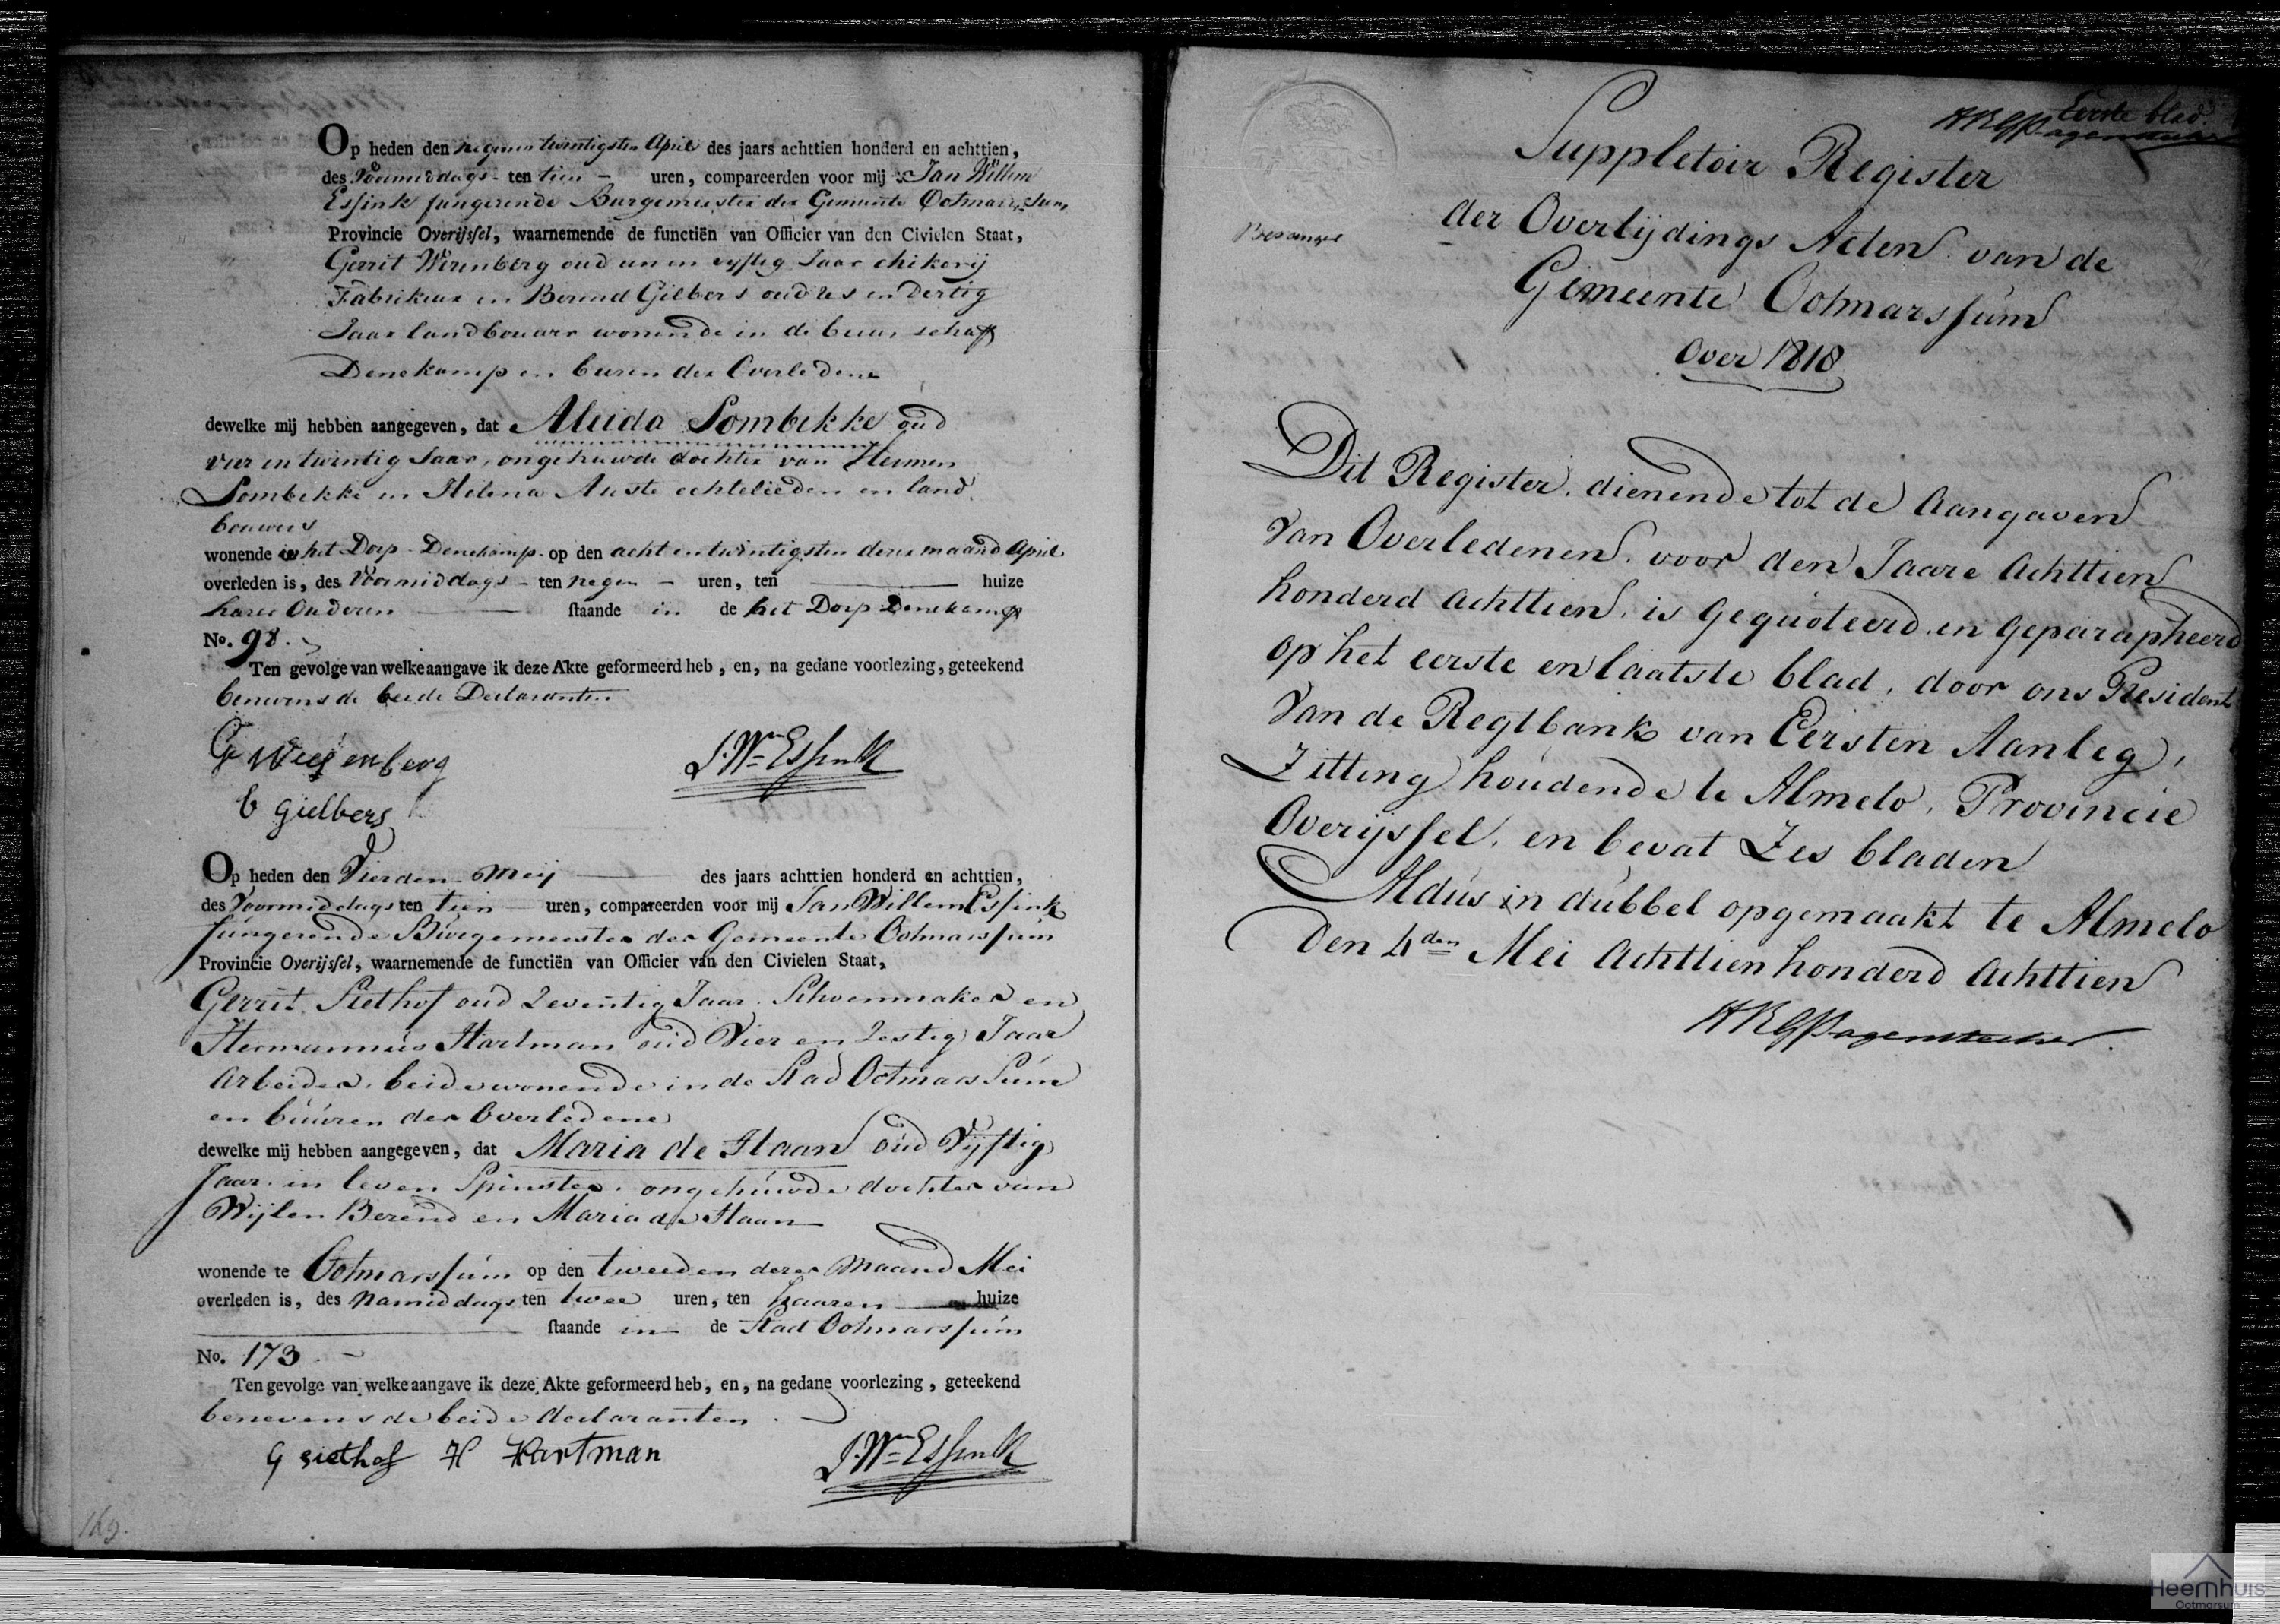 Op heden den negenentwintigsten April des jaars achttien honderd en achttien,
des Voormiddags ten tien uren, compareerden voor mij Jan Willem
Essink fungerende Burgemeester der Gemeente Ootmarssum,
Provincie Overijssel, waarnemende de functiën van Officier van den Civielen Staat,
Gerrit oud een en vyftig Jaar chikorij
Fabrikeur en Berend Gilbers oud zes en Dertig
Jaar landbouwer wonende in de buurschap
Denekamp en buren der Overledene
dewelke mij hebben aangegeven, dat Aleida Sombekke oud
vier en twintig Jaar, ongehuwde dochter van Hermen
Sombekke en Helena echtelieden en land
bouwers
wonende in het Dorp Denekamp op den acht en twintigsten dezer maand April
overleden is, des Voormiddags ten negen uren, ten huize
harer Ouderen staande in de het Dorp Denekamp
No. 98.
Ten gevolge van welke aangave ik deze Akte geformeerd heb, en, na gedane voorlezing, geteekend
benevens de beide Declaranten
G
J. Wm Essink
B Gielbers
Op heden den Vierden Meij des jaars achttien honderd en achttien,
des Voormiddags ten tien uren, compareerden voor mij Jan Willem Essink
fungerende Burgemeester der Gemeente Ootmarssum
Provincie Overijssel, waarnemende de functiën van Officier van den Civielen Staat,
Gerrit Siethof oud Zeventig Jaar Schoenmaker en
Hermannus Hartman oud Vier en Zestig Jaar
Arbeider, beide wonende in de Stad Ootmarssum
en buuren der Overledene
dewelke mij hebben aangegeven, dat Maria de Haan oud Vijftig
Jaar in leven Spinster, ongehuwde dochter van
Wijlen Berend en Maria de Haan
wonende te Ootmarssum op den tweeden dezer Maand Mei
overleden is, des Namiddags ten twee uren, ten haaren huize
staande in de Stad Ootmarssum
No. 173.
Ten gevolge van welke aangave ik deze Akte geformeerd heb, en, na gedane voorlezing, geteekend
benevens de beide declaranten
G siethof H Hartman
J. Wm Essink
169.
Eerste blad.
HRGPagenstecher
Suppletoir Register
der Overlijdings Acten van de
Gemeente Ootmarssum
Over 1818
Dit Register, dienende tot de Aangaven
Van Overledenen, voor den Jaare Achttien
honderd achttien, is gequoteerd en geparapheerd
op het eerste en laatste blad, door ons President
Van de Regtbank van Eersten Aanleg,
Zitting houdende te Almelo, Provincie
Overijssel, en bevat Zes bladen
Aldus in dubbel opgemaakt te Almelo
Den 4den Mei Achttien honderd Achttien
HRGPagenstecher
Heemhuis
Ootmarsum